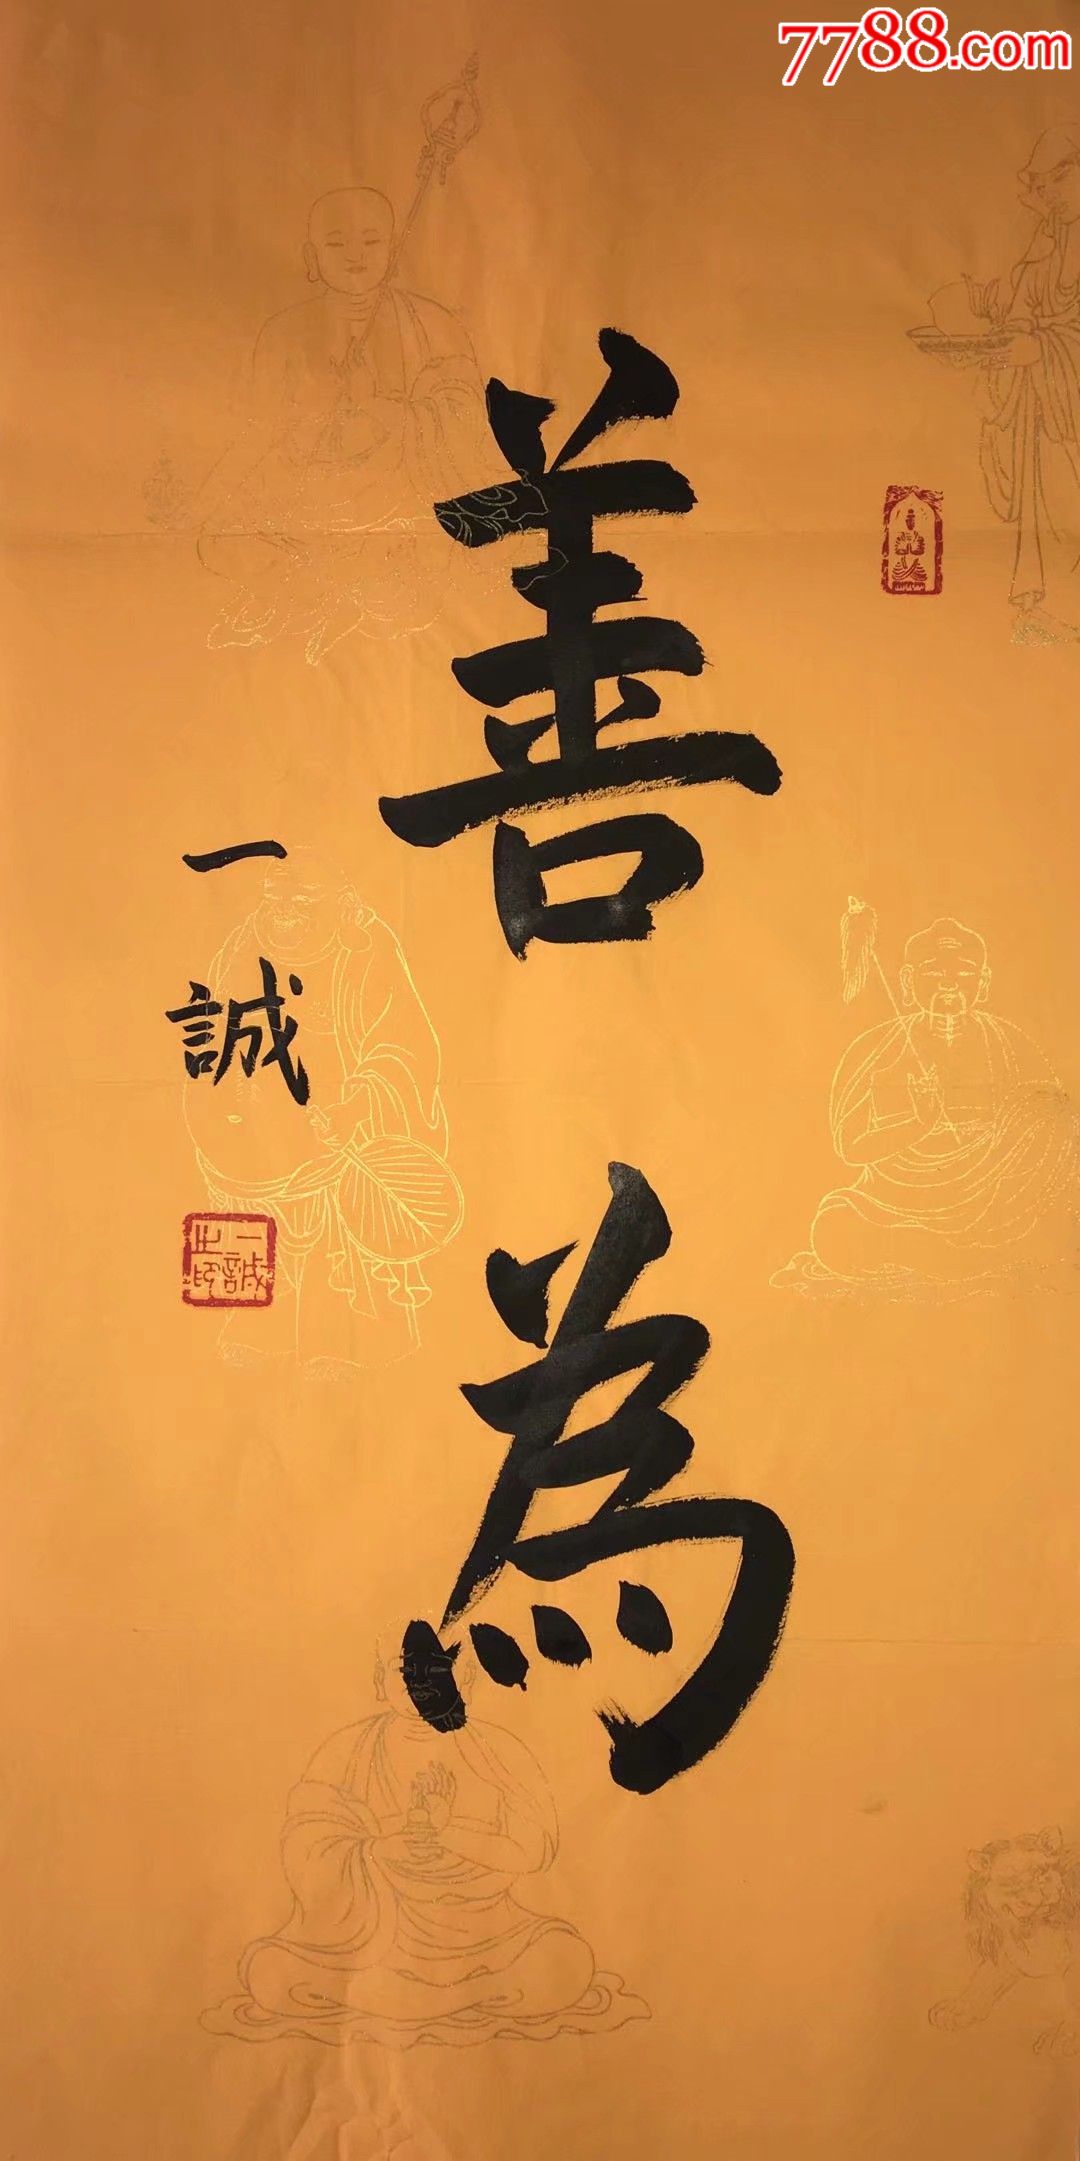 7788.com
善為
一誠
一誠之印